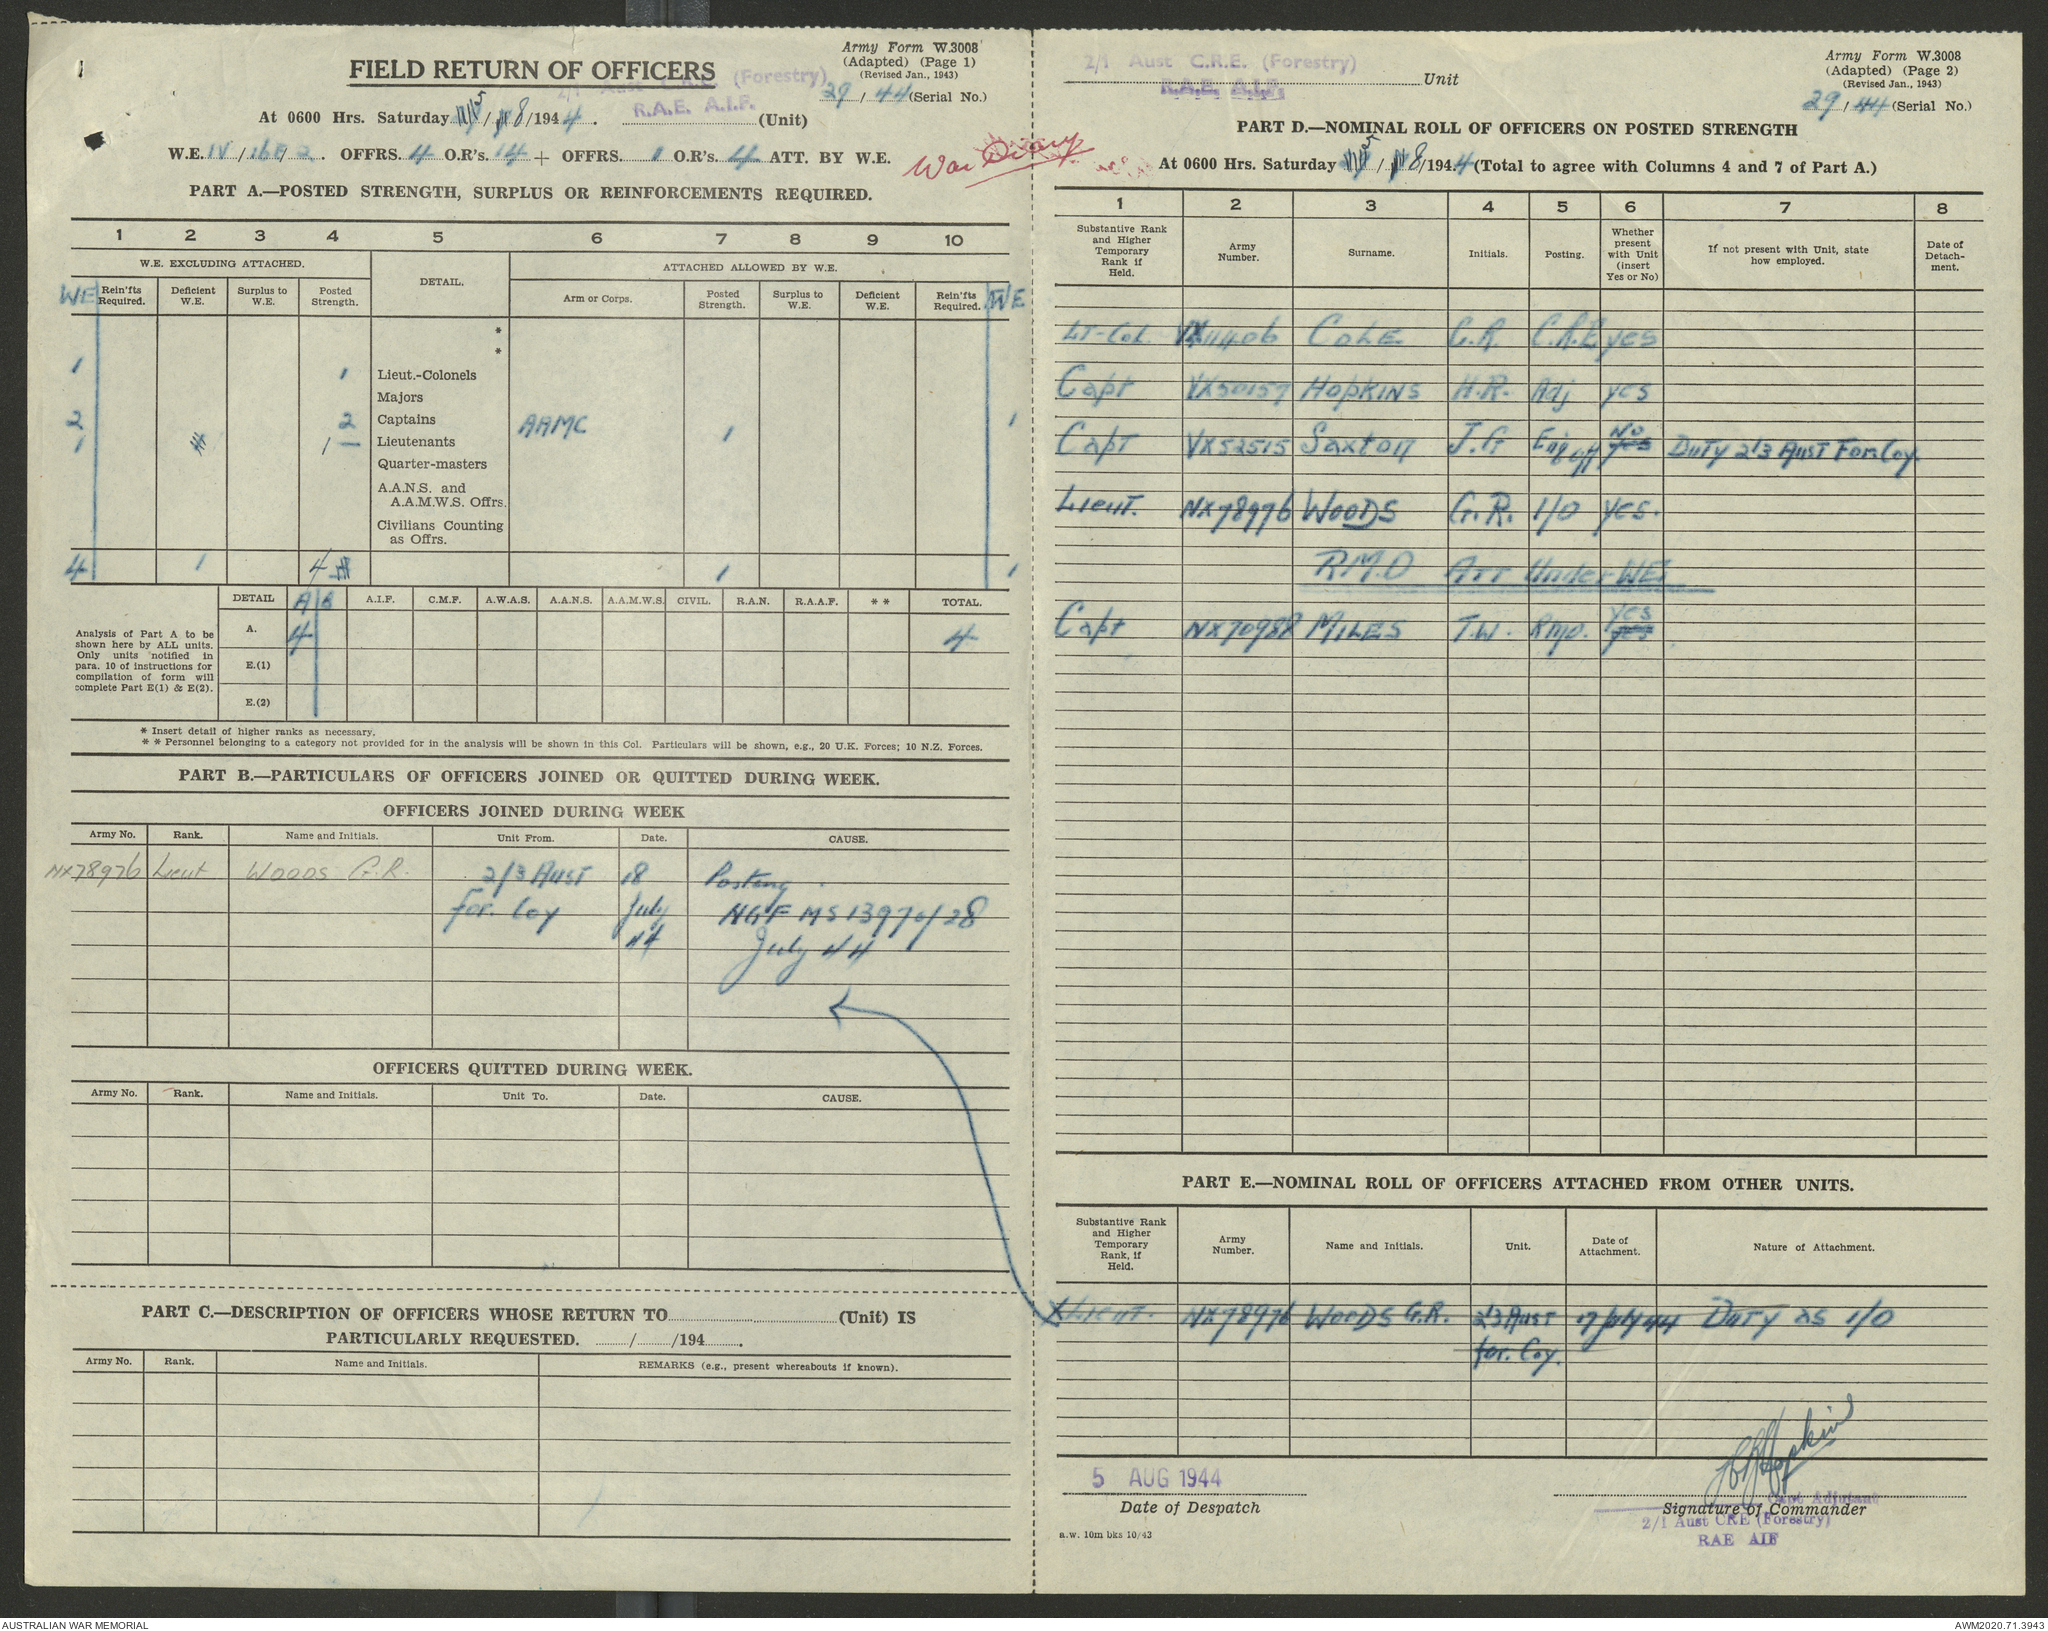 Army Form W.3008
(Adapted) (Page 1)
(Revised Jan., 1943)
FIELD RETURN OF OFFICERS
2/1 Aust C.R.E. (Forestry)
R.A.E. A.I.F.
29 / 44 (Serial No.)
At 0600 Hrs. Saturday 5 / 8 /1944. (Unit)
W.E. IV / 16E / 2. OFFRS. 4 O.R's. 14 + OFFRS. 1 O.R's. 4 ATT. BY W.E.
War Diary
PART A.—POSTED STRENGTH, SURPLUS OR REINFORCEMENTS REQUIRED.
1 2 3 4 5 6 7 8 9 10
W.E. EXCLUDING ATTACHED. DETAIL. ATTACHED ALLOWED BY W.E.
WE Rein'fts Required. Deficient W.E. Surplus to W.E. Posted Strength. Arm or Corps. Posted Strength. Surplus to W.E. Deficient W.E. Rein'fts Required. WE
*
*
1 1 Lieut.-Colonels
Majors
2 2 Captains AAMC 1 1
1 1 Lieutenants
Quarter-masters
A.A.N.S. and
A.A.M.W.S. Offrs.
Civilians Counting
as Offrs.
4 1 4 1 1
DETAIL A B A.I.F. C.M.F. A.W.A.S. A.A.N.S. A.A.M.W.S. CIVIL. R.A.N. R.A.A.F. * * TOTAL.
Analysis of Part A to be
shown here by ALL units.
Only units notified in
para. 10 of instructions for
compilation of form will
complete Part E(1) & E(2).
A. 4 4
E.(1)
E.(2)
* Insert detail of higher ranks as necessary.
* * Personnel belonging to a category not provided for in the analysis will be shown in this Col. Particulars will be shown, e.g., 20 U.K. Forces; 10 N.Z. Forces.
PART B.—PARTICULARS OF OFFICERS JOINED OR QUITTED DURING WEEK.
OFFICERS JOINED DURING WEEK
Army No. Rank. Name and Initials. Unit From. Date. CAUSE.
NX78976 Lieut WOODS G.R. 2/3 Aust 18 Posting
for. Coy July NGF MS 13970/28
44 July 44
OFFICERS QUITTED DURING WEEK.
Army No. Rank. Name and Initials. Unit To. Date. CAUSE.
PART C.—DESCRIPTION OF OFFICERS WHOSE RETURN TO (Unit) IS
PARTICULARLY REQUESTED. / /194 .
Army No. Rank. Name and Initials. REMARKS (e.g., present whereabouts if known).
2/1 Aust C.R.E. (Forestry)
R.A.E. A.I.F.
Unit
Army Form W.3008
(Adapted) (Page 2)
(Revised Jan., 1943)
29 / 44 (Serial No.)
PART D.—NOMINAL ROLL OF OFFICERS ON POSTED STRENGTH
At 0600 Hrs. Saturday 5 / 8/1944 (Total to agree with Columns 4 and 7 of Part A.)
1 2 3 4 5 6 7 8
Substantive Rank and Higher Temporary Rank if Held. Army Number. Surname. Initials. Posting. Whether present with Unit (insert Yes or No) If not present with Unit, state how employed. Date of Detach-ment.
LT-Col. VX11406 COLE C.R. C.R.E yes
Capt VX50157 HopKINS H.R. Adj yes
Capt VX52515 Saxton J.G Eng off No yes DUTY 2/3 AUST For Coy.
Lieut. NX78976 WOODS G.R. I/O yes.
RMO ATT Under WE.
Capt NX70988 MILES T.W. RMO. yes yes
PART E.—NOMINAL ROLL OF OFFICERS ATTACHED FROM OTHER UNITS.
Substantive Rank and Higher Temporary Rank, if Held. Army Number. Name and Initials. Unit. Date of Attachment. Nature of Attachment.
X LIEUT. NX78976 WOODS G.R. 2/3 Aust 17 July 44 DUTY as I/O
for. Coy.
HRHopkins
5 AUG 1944
Date of Despatch
Capt Adjutant
Signature of Commander
2/1 Aust CRE (Forestry)
RAE AIF
a.w. 10m bks 10/43
AUSTRALIAN WAR MEMORIAL
AWM2020.71.3943